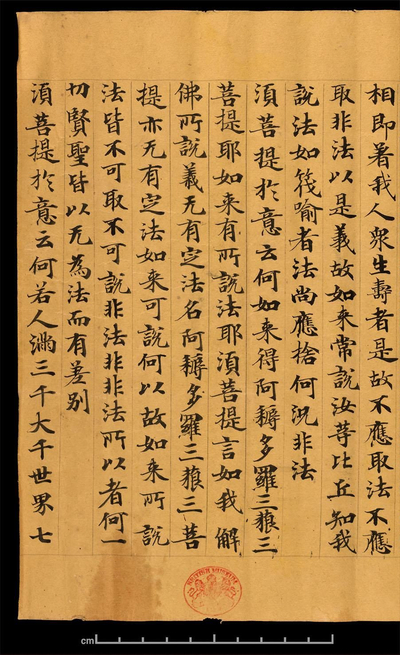 相即著我人衆生壽者是故不應取法不應
取非法以是義故如來常說汝等比丘知我
說法如筏喻者法尚應捨何況非法
須菩提於意云何如来得阿耨多羅三藐三
菩提耶如来有所說法耶須菩提言如我解
佛所說義无有定法名阿耨多羅三藐三菩
提亦无有定法如来可說何以故如来所說
法皆不可取不可說非法非非法所以者何一
切賢聖皆以无為法而有差別
須菩提於意云何若人滿三千大千世界七
BRITISH MUSEUM
cm